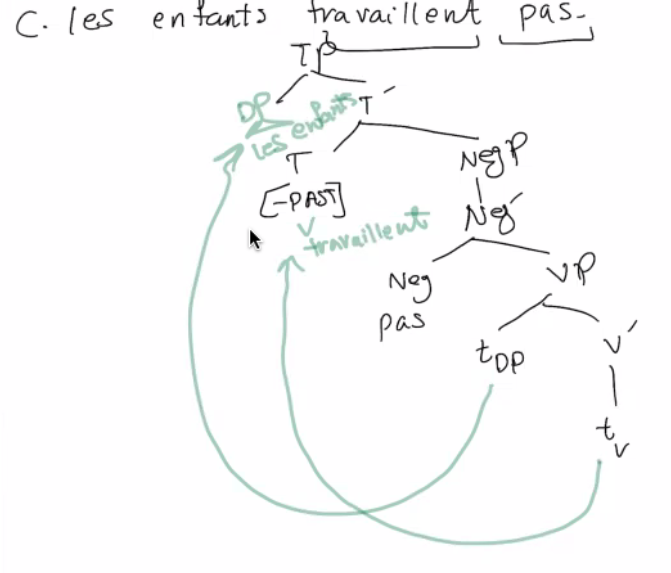 C. les enfants travaillent pas.
TP
DP
les enfants
T´
T
[-PAST]
NegP
V
travaillent
Neg´
Neg
pas
VP
t DP
V´
t V